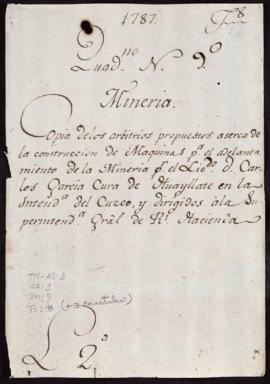 1787.
Quad.no N. 9.o
Mineria.
Copia de los arbitrios propuestos aserca de
la construccion de Maquinas p.a el adelanta
miento de la Mineria p.r el Lic.do d. Car
los Garcia Cura de Huayllate en la
Intend.a del Cuzco, y dirigidos a la Su
perintend.a Gral de R.l Hacienda
C: 1
L 2.o